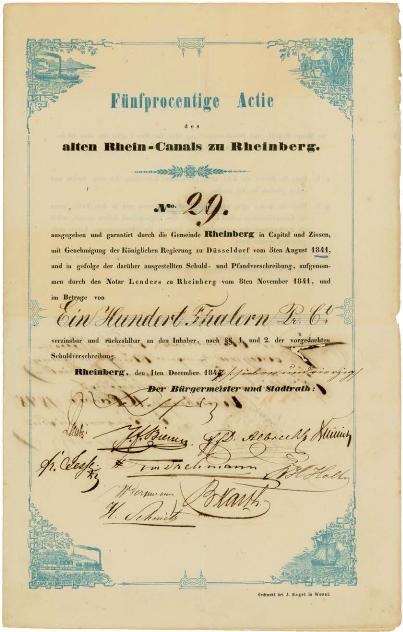 Fünfprocentige Actie
des
alten Rhein-Canals zu Rheinberg.
No. 29.
ausgegeben und garantirt durch die Gemeinde Rheinberg in Capital und Zinsen,
mit Genehmigung der Königlichen Regierung zu Düsseldorf vom 5ten August 1841,
und in gefolge der darüber ausgestellten Schuld- und Pfandverschreibung, aufgenom-
men durch den Notar Lenders zu Rheinberg vom 8ten November 1841, und
im Betrage von
Ein Hundert Thalern Pr. Ct.
verzinsbar und rückzahlbar an den Inhaber, nach §§. 1. und 2. der vorgedachten
Schuldverschreibung
Rheinberg, den 1ten December 184
Der Bürgermeister und Stadtrath:
Albrecht
H. Schmitz
Gedruckt bei J. Bagel in Wesel.